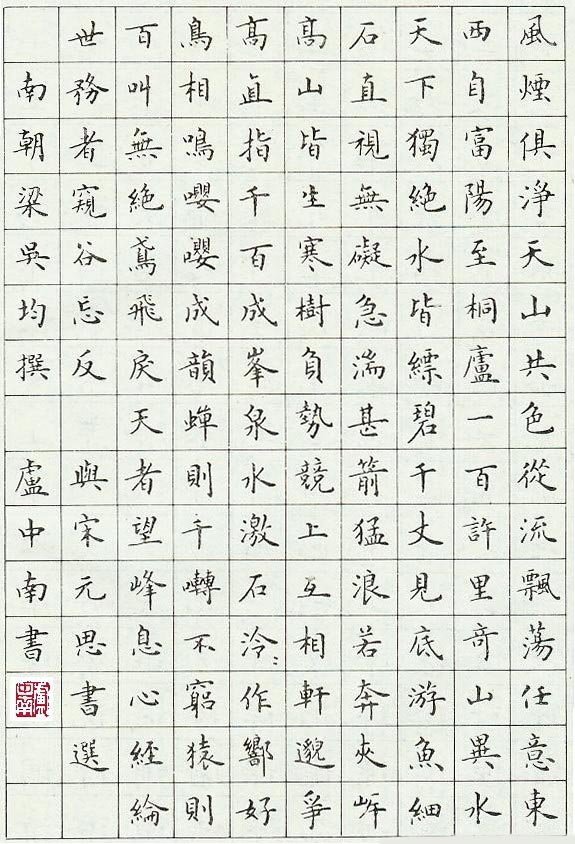 風煙俱淨天山共色從流飄蕩任意東
西自富陽至桐廬一百許里奇山異水
天下獨絕水皆縹碧千丈見底游魚細
石直視無礙急湍甚箭猛浪若奔夾岸
高山皆生寒樹負勢競上互相軒邈爭
高直指千百成峯泉水激石泠〻作響好
鳥相鳴嚶嚶成韻蟬則千囀不窮猿則
百叫無絕鳶飛戾天者望峰息心經綸
世務者窺谷忘反 與宋元思書選
南朝梁吳均撰 盧中南書
盧中南